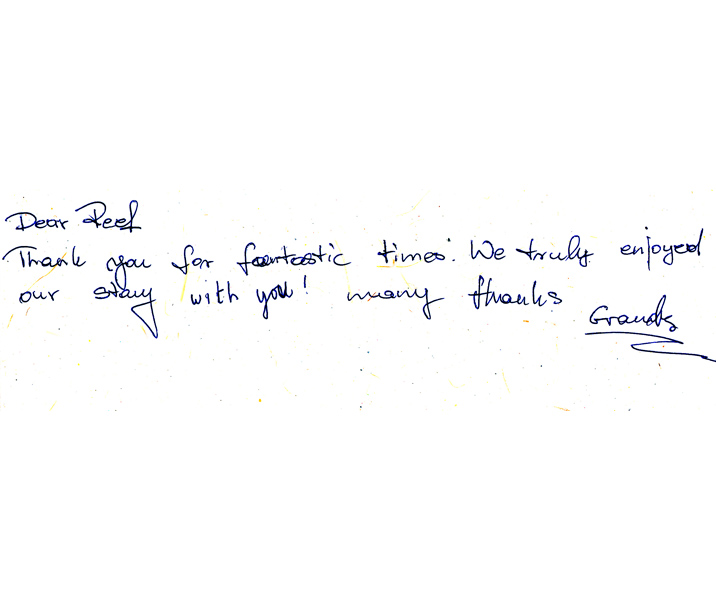 Dear Reef
Thank you for fantastic times. We truly enjoyed
our stay with you! many thanks